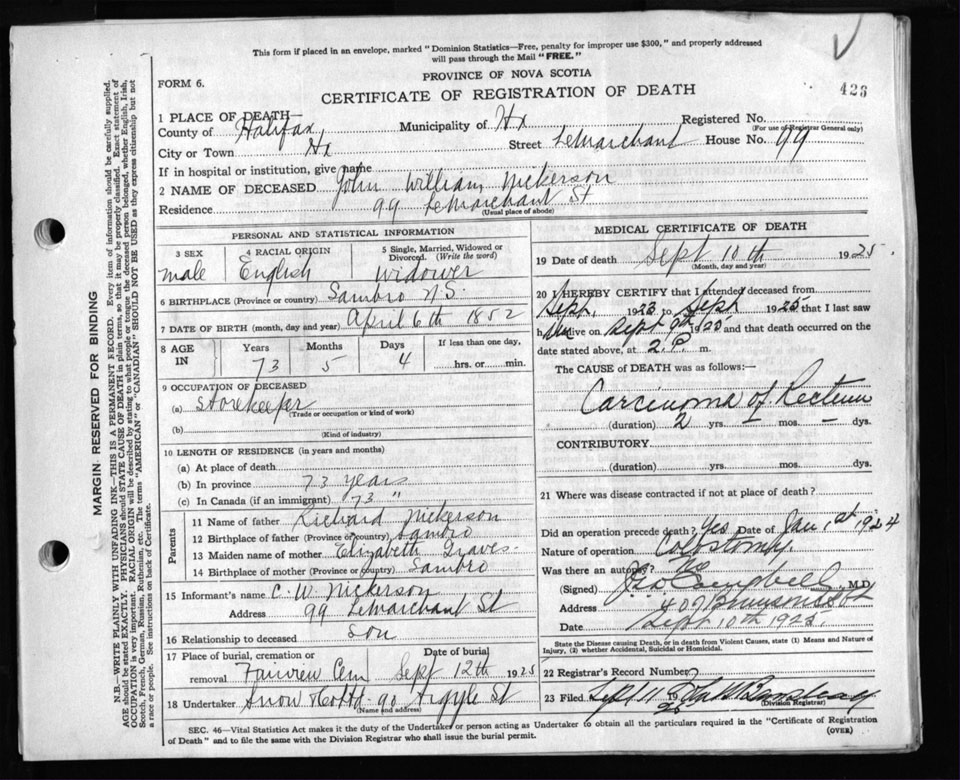 This form if placed in an envelope, marked "Dominion Statistics—Free, penalty for improper use $300," and properly addressed
will pass through the Mail "FREE."
PROVINCE OF NOVA SCOTIA
FORM 6.
CERTIFICATE OF REGISTRATION OF DEATH
426
1 PLACE OF DEATH
County of Halifax, Municipality of Hx Registered No.
(For use of Registrar General only)
City or Town Hx Street LeMarchant House No. 99
If in hospital or institution, give name
2 NAME OF DECEASED John William Nickerson
Residence 99 LeMarchant St
(Usual place of abode)
PERSONAL AND STATISTICAL INFORMATION
3 SEX 4 RACIAL ORIGIN 5 Single, Married, Widowed or
Divorced. (Write the word)
male English widower
6 BIRTHPLACE (Province or country) Sambro N.S.
7 DATE OF BIRTH (month, day and year) April 6th 1852
8 AGE IN Years Months Days If less than one day,
73 5 4 hrs. or min.
9 OCCUPATION OF DECEASED
(a) Storekeeper
(Trade or occupation or kind of work)
(b)
(Kind of industry)
10 LENGTH OF RESIDENCE (in years and months)
(a) At place of death
(b) In province 73 years
(c) In Canada (if an immigrant) 73 "
Parents
11 Name of father Richard Nickerson
12 Birthplace of father (Province or country) Sambro
13 Maiden name of mother Elizabeth Graves
14 Birthplace of mother (Province or country) Sambro
15 Informant's name C. W. Nickerson
Address 99 LeMarchant St
16 Relationship to deceased son
17 Place of burial, cremation or removal Date of burial
Fairview Cem Sept 12th 1925
18 Undertaker Snow & Co Ltd 90 Argyle St
(Name and address)
MEDICAL CERTIFICATE OF DEATH
19 Date of death Sept 10th 1925
(Month, day and year)
20 I HEREBY CERTIFY that I attended deceased from
Sept, 1923 to Sept 1925 that I last saw
h im alive on Sept 9th 1925 and that death occurred on the
date stated above, at 2.P. m.
The CAUSE of DEATH was as follows:—
Carcinoma of Rectum
(duration) 2 yrs. – mos. – dys.
CONTRIBUTORY
(duration) yrs. mos. dys.
21 Where was disease contracted if not at place of death?
Did an operation precede death? Yes Date of Jan 1st 1924
Nature of operation Colostomy.
Was there an autopsy? No
(Signed) Geo Campbell M.D.
Address 407 Brunswick St
Date Sept 10th 1925.
State the Disease causing Death, or in death from Violent Causes, state (1) Means and Nature of
Injury, (2) whether Accidental, Suicidal or Homicidal.
22 Registrar's Record Number
23 Filed Sept 11 1925
(Division Registrar)
SEC. 46—Vital Statistics Act makes it the duty of the Undertaker or person acting as Undertaker to obtain all the particulars required in the "Certificate of Registration
of Death" and to file the same with the Division Registrar who shall issue the burial permit.
(OVER)
MARGIN RESERVED FOR BINDING
N.B.—WRITE PLAINLY WITH UNFADING INK—THIS IS A PERMANENT RECORD. Every item of information should be carefully supplied.
AGE should be stated EXACTLY. PHYSICIANS should STATE CAUSE OF DEATH in plain terms, so that it may be properly classified. Exact statement of
OCCUPATION is very important. RACIAL ORIGIN will be described by stating to what people or tongue the deceased person belonged, whether English, Irish,
Scotch, French, German, Russian, Ruthenian, etc. The terms "AMERICAN" or "CANADIAN" SHOULD NOT BE USED as they express citizenship but not
a race or people. See instructions on back of Certificate.